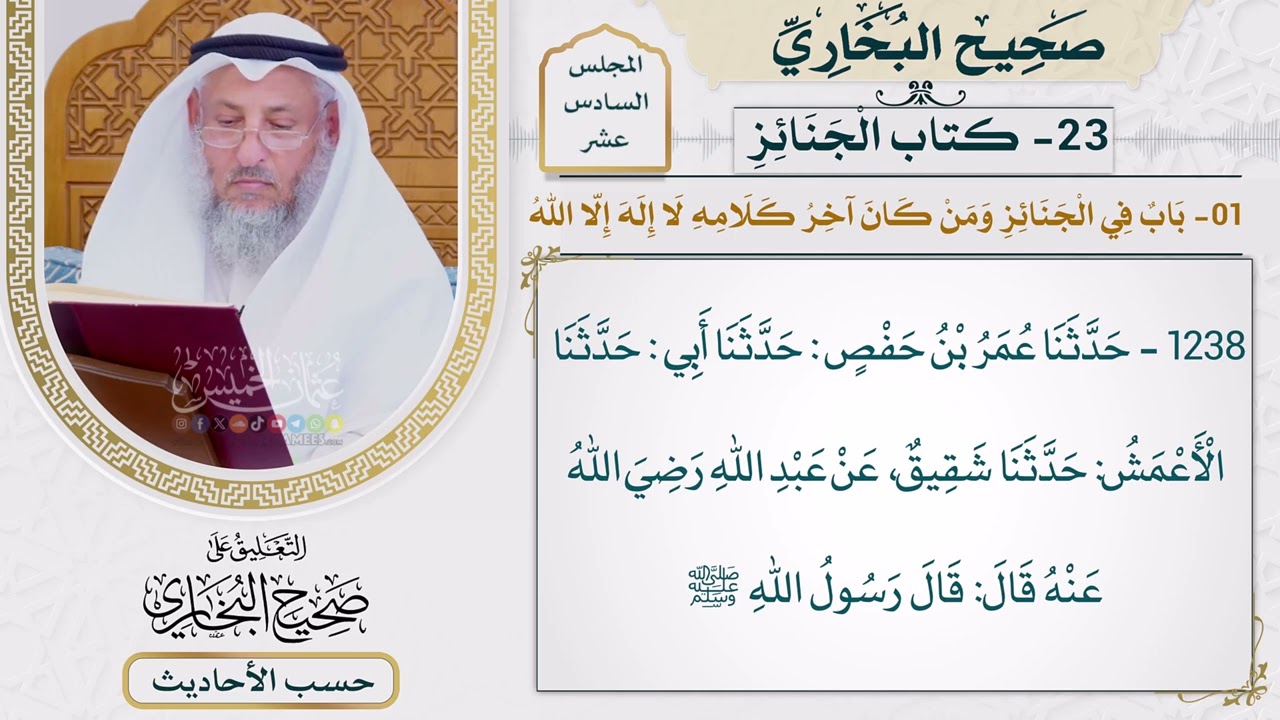 صَحِيح البُخَارِيِّ
المجلس
السادس
عشر
23- كتاب الْجَنَائِزِ
01- بَابٌ فِي الْجَنَائِزِ وَمَنْ كَانَ آخِرُ كَلَامِهِ لَا إِلَهَ إِلَّا اللهُ
1238 - حَدَّثَنَا عُمَرُ بْنُ حَفْصٍ: حَدَّثَنَا أَبِي: حَدَّثَنَا
الْأَعْمَشُ: حَدَّثَنَا شَقِيقٌ، عَنْ عَبْدِ اللهِ رَضِيَ اللهُ
عَنْهُ قَالَ: قَالَ رَسُولُ اللهِ ﷺ
عثمان الخميس
التَّعْلِيقُ عَلَى
صَحِيحِ البُخَارِيِ
حسب الأحاديث